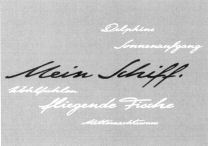 Delphine
Sonnenaufgang
Mein Schiff.
Wohlfühlen
fliegende Fische
Mitternachtssonne